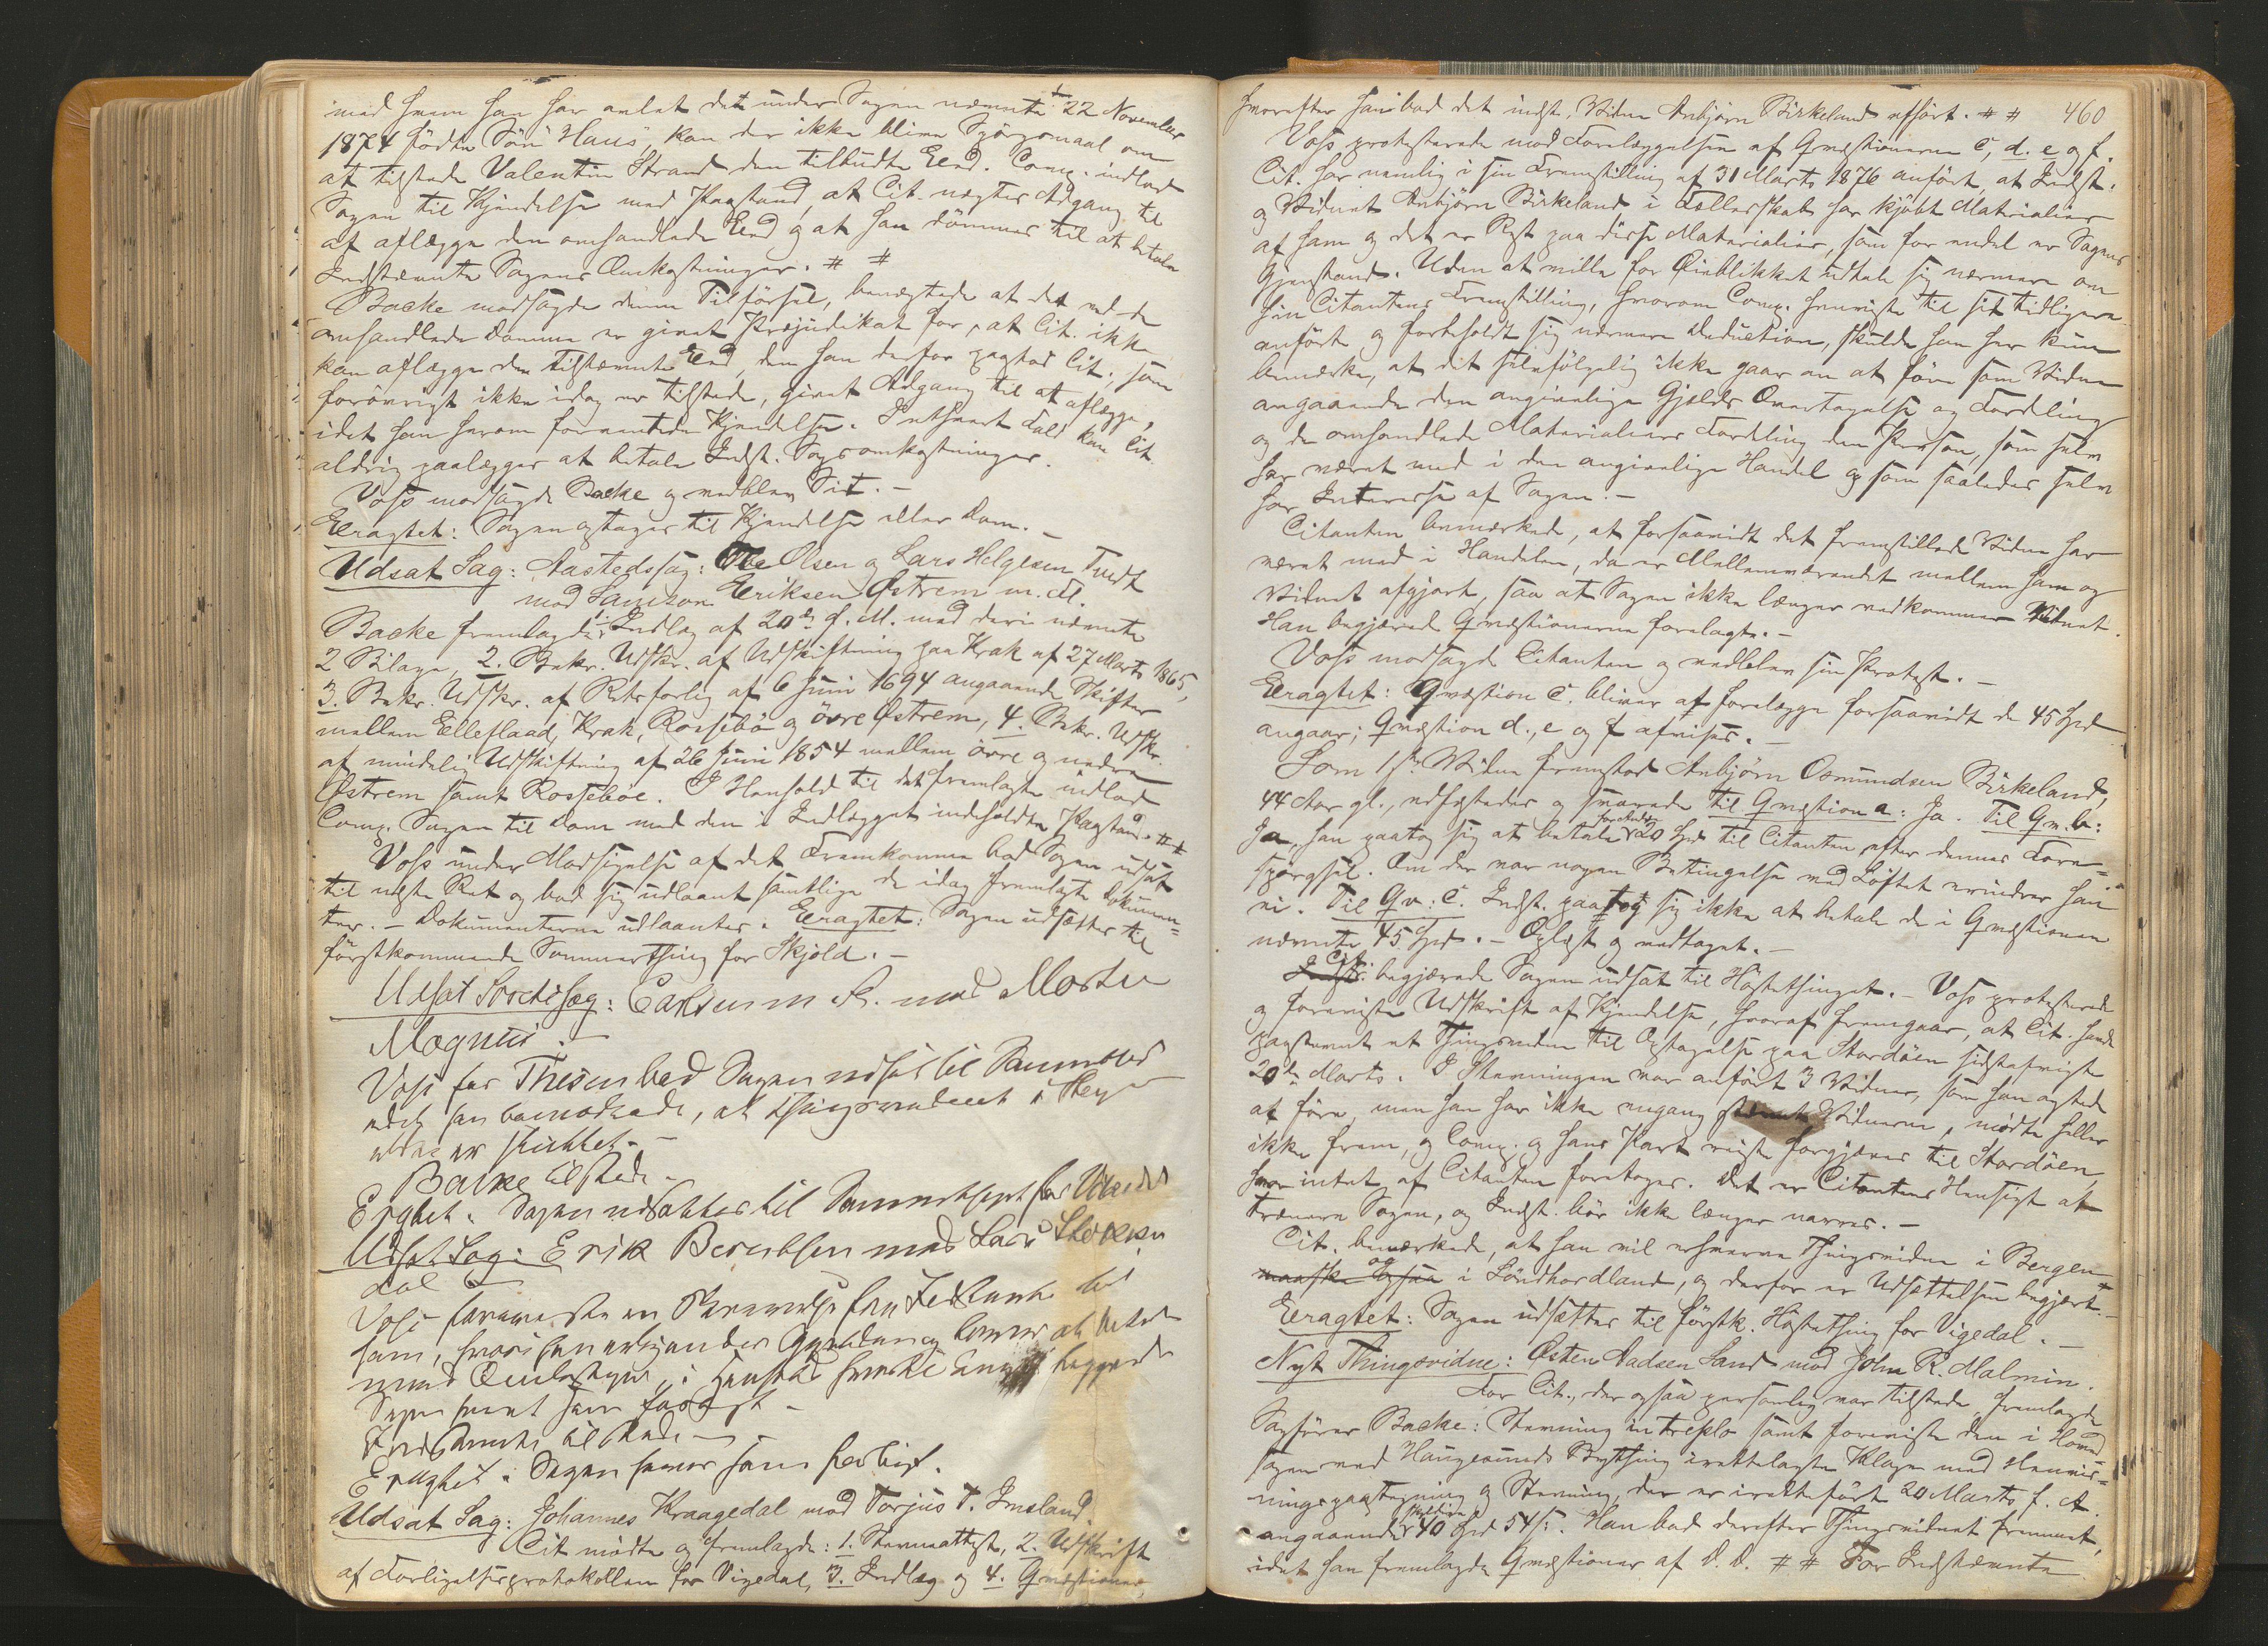 med hvem han har avlet det under Sagen nævnte 22 November
1874 födte Sön "Hans", kan der ikke blive Spörgsmaal om
at tilstede Valentin Strand den tilbudte Eed. Comp. indlod
Sagen til Kjendelse med Paastand, at Cit. nægtes Adgang til
at aflægge den omhandlede Eed og at han dömmes til at betale
Indstævnte Sagens Omkostninger. # #
Backe modsagde denne Tilförsel, benægtede at det ved de
omhandlede Domme er givet Præjudikat for, at Cit. ikke
kan aflægge den tilstævnte Eed, den han derfor paastod Cit., som
forövrigt ikke idag er tilstede, givet Adgang til at aflægge,
idet han herom forventede Kjendelse. I ethvert Fald kan Cit.
aldrig paalægges at betale Indst. Sagsomkostninger.
Voss modsagde Backe og vedblev Sit. -
Eragtet: Sagen optages til Kjendelse eller Dom. -
Udsat Sag: Aastedssag: Ole Olsen og Lars Helgesen Tvedt
mod Samson Eriksen Østrem m. Fl.
Backe fremlagde 1. Indlæg af 20de d. M. med deri nævnte
2 Bilage, 2. Bekr. Udskr. af Udskiftning paa Krak af 27 Marts 1865,
3. Bekr. Udskr. af Retsforlig af 6 Juni 1694 angaaende Skifter
mellem Elleflaad, Krak, Rossebö og övre Østrem, 4. Bekr. Udskr.
af mindelig Udskiftning af 26 Juni 1854 mellem övre og nedre
Østrem samt Rosseböe. I Henhold til det fremlagte indlod
Comp. Sagen til Dom med den i Indlægget indeholdte Paastand. # #
Voss under Modsigelse af det Fremkomne bad Sagen udsat
til næste Ret og bad sig udlaant samtlige de idag fremlagte Dokumen=
ter. - Dokumenterne udlaantes. Eragtet: Sagen udsættes til
förstkommende Sommerthing for Skjold. -
Udsat Sag: Carlsen m. Fl. mod Morten
Magnus. -
Voss for Thesen bad Sagen udsat til Sommerth
idet han bemærkede, at thingsvidnet i
er sluttet. -
Backe tilstede. -
Eragtet: Sagen udsættes til Sommerthinget for
Udsat Sag: Erik Berentsen mod Lars
dal
Voss foreviste en Skrivelse fra Indstævnte til
ham, hvori han erkjender Gjælden og lover at betale
med Omkostninger, i Henhold hvortil
Sagen hævet som forligt. -
Indstævnte tilstede. -
Eragtet: Sagen hæves som forligt.
Udsat Sag: Johannes Kraagedal mod Torjus T. Imsland.
Cit mödte og fremlagde: 1. Stevneattest, 2. Udskrift
af Forligelsesprotokollen for Vigedal, 3. Indlæg og 4. Qvæstioner,
460
hvorefter han bad det indst. Vidne Anbjörn Birkeland afhört. # #
Voss protesterede mod Forelæggelsen af Qvæstionerne c, d. e og f.
Cit. har nemlig i sin Fremstilling af 31 Marts 1876 anfört, at Indst.
og Vidnet Anbjörn Birkeland i Fællesskab har kjöbt Materialier
af ham og det er Rest paa disse Materialier, som for endel er Sagens
Gjenstand. Uden at ville for Øieblikket udtale sig nærmere om
hin Citantens Fremstilling, hvorom Comp. henviste til sit tidligere
anfört og forbeholdt sig nærmere Deduction, skulde han her kun
bemærke, at det selvfölgelig ikke gaar an at före som Vidne
angaaende den angivelige Gjælds Overtagelse og Fordeling
og de omhandlede Materialiers Fordeling den Person, som selv
har været med i den angivelige Handel og som saaledes selv
har Interesse af Sagen. -
Citanten bemærkede, at forsaavidt det fremstillede Vidne har
været med i Handelen, da er Mellemværendet mellem ham og
Vidnet afgjort, saa at Sagen ikke længer vedkommer Vidnet.
Han begjærede Qvæstionerne forelagte. -
Voss modsagde Citanten og vedblev sin Protest. -
Eragtet: Qvæstion c. bliver at forelægge forsaavidt de 45 Spd
angaar; Qvæstion d., e og f afvises. -
Som 1ste Vidne fremstod Anbjörn Osmundsen Birkeland,
44 Aar gl., edfæstedes og svarede til Qvæstion a: Ja. Til Qv. b:
Ja, han paatog sig at betale for Indst. 20 Spd til Citanten efter dennes Fore=
spörgsel. Om der var nogen Betingelse ved Löftet erindrer han
ei. Til Qv: c. Indst. paatog sig ikke at betale de i Qvæstionen
nævnte 45 Spd. - Oplæst og vedtaget. -
Cit. begjærede Sagen udsat til Höstethinget. - Voss protesterede
og foreviste Udskrift af Kjendelse, hvoraf fremgaar, at Cit. havde
paastevnet et Thingsvidne til Optagelse paa Stordöen sidstafvigte
20de Marts. I Stevningen var anfört 3 Vidner, som han agtede
at före, men han har ikke engang stevnet Vidnerne, mödte heller
ikke frem, og Comp. og hans Part reiste forgjæves til Stordöen,
hvor intet af Citanten foretoges. Det er Citantens Hensigt at
trænere Sagen, og Indst. bör ikke længer narres. -
Cit. bemærkede, at han vil erhverve Thingsvidne i Bergen
maaske ogsaa og i Söndhordland, og derfor er Udsettelsen begjært. -
Eragtet: Sagen udsættes til förstk. Höstething for Vigedal. -
Nyt Thingsvidne: Østen Aadsen Sand mod John R. Malmin.
For Cit., der ogsaa personlig var tilstede, fremlagde
Sagförer Backe: Stevning in treplo samt foreviste den i Hoved=
sagen ved Haugesunds Bything irettelagte Klage med Henvis=
ningspaategning og Stevning, der er iretteført 20 Marts f. A.
angaaende 40 Spd 54 s. Han bad derefter Thingsvidnet fremmet,
idet han fremlagde Qvæstioner af D. D. # # For Indstævnte